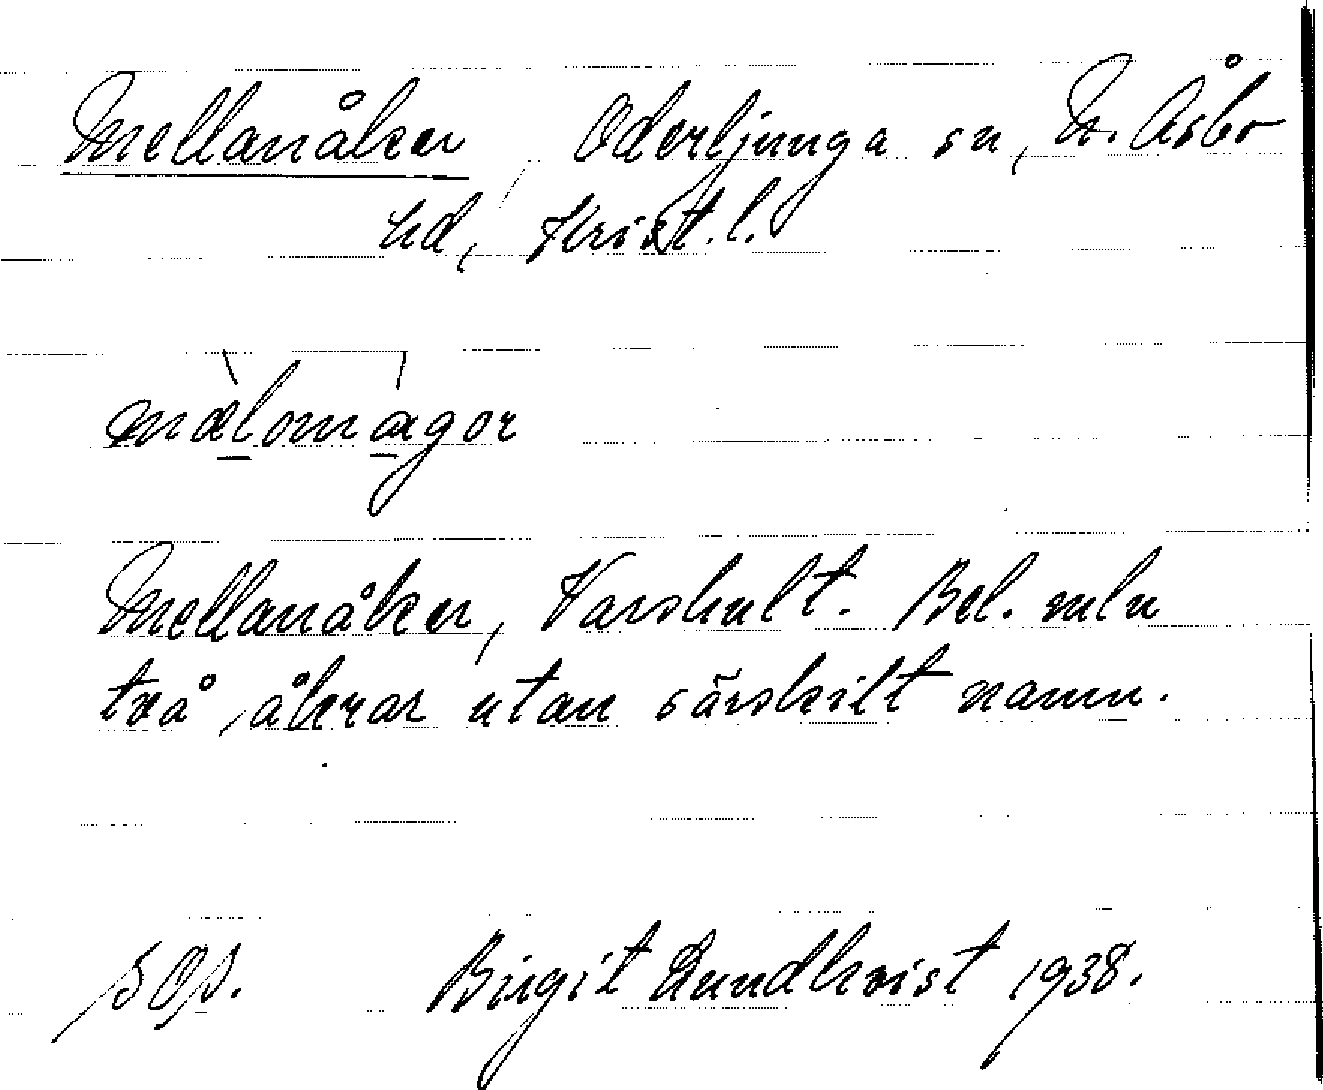 Mellanåker, Oderljunga sn, N. Åsbo
hd, Krist.l.
mælomagor
Mellanåker, Varshult. Bel. mln
två åkrar utan särskilt namn.
Birgit Lundkvist 1938.